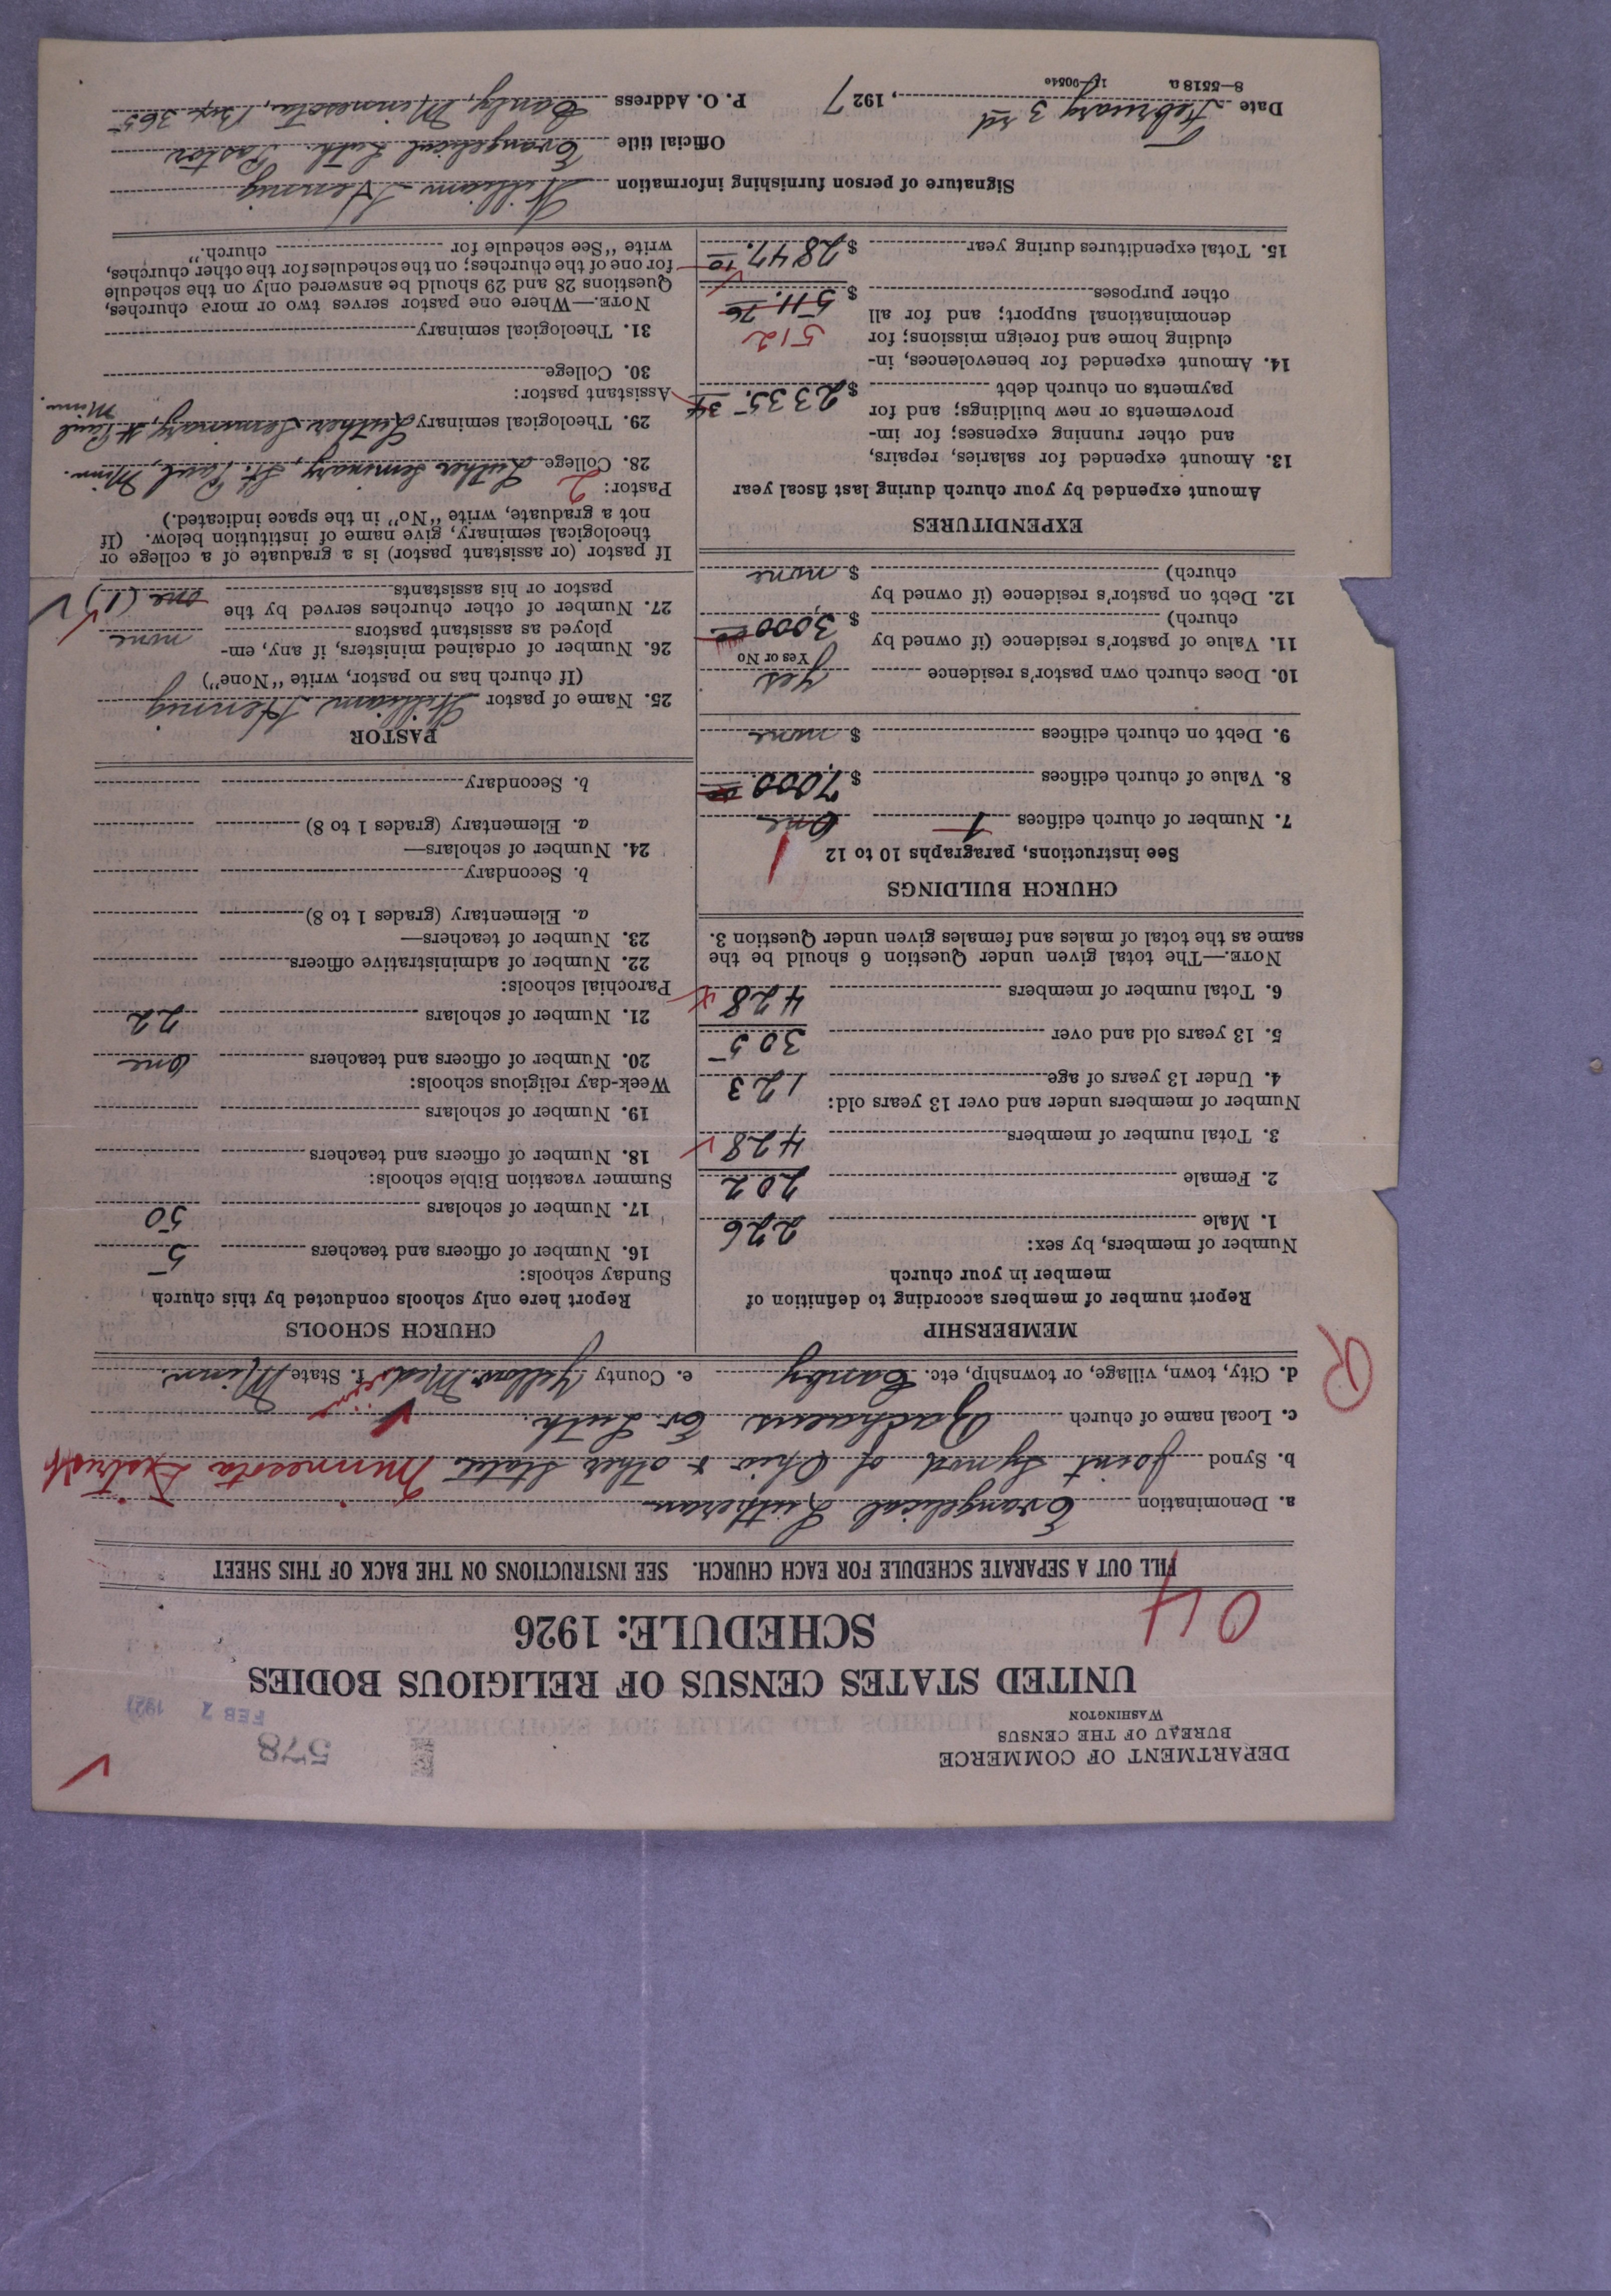 DEPARTMENT OF COMMERCE
BUREAU OF THE CENSUS
WASHINGTON
578
FEB 192
UNITED STATES CENSUS OF RELIGIOUS BODIES
SCHEDULE: 1926
04
FILL OUT A SEPARATE SCHEDULE FOR EACH CHURCH. SEE INSTRUCTIONS ON THE BACK OF THIS SHEET
a. Denomination Evangelical Lutheran
b. Synod Joint Synod of Ohio & other States Minnesota District
c. Local name of church Zachaeus Ev. Luth.
d. City, town, village, or township, etc. Canby e. County Yellow Medicine f. State Minn.
R
MEMBERSHIP
Report number of members according to definition of
member in your church
Number of members, by sex:
1. Male 226
2. Female 202
3. Total number of members 428
Number of members under and over 13 years old:
4. Under 13 years of age 123
5. 13 years old and over 305
6. Total number of members 428
NOTE.—The total given under Question 6 should be the
same as the total of males and females given under Question 3.
CHURCH BUILDINGS
See instructions, paragraphs 10 to 12
7. Number of church edifices 1 One 1
8. Value of church edifices $ 7,000 00
9. Debt on church edifices $ none
10. Does church own pastor's residence yes
Yes or No
11. Value of pastor's residence (if owned by
church) $ 3,000 00
12. Debt on pastor's residence (if owned by
church) $ none
EXPENDITURES
Amount expended by your church during last fiscal year
13. Amount expended for salaries, repairs,
and other running expenses; for im-
provements or new buildings; and for
payments on church debt $ 2335. 34
14. Amount expended for benevolences, in-
cluding home and foreign missions; for
denominational support; and for all
other purposes $ 511. 76
512
15. Total expenditures during year $ 2847. 10
CHURCH SCHOOLS
Report here only schools conducted by this church
Sunday schools:
16. Number of officers and teachers 5
17. Number of scholars 50
Summer vacation Bible schools:
18. Number of officers and teachers
19. Number of scholars
Week-day religious schools:
20. Number of officers and teachers One
21. Number of scholars 22
Parochial schools:
22. Number of administrative officers
23. Number of teachers—
a. Elementary (grades 1 to 8)
b. Secondary
24. Number of scholars—
a. Elementary (grades 1 to 8)
b. Secondary
PASTOR
25. Name of pastor William Hennig
(If church has no pastor, write "None")
26. Number of ordained ministers, if any, em-
ployed as assistant pastors none
27. Number of other churches served by the
pastor or his assistants one (1)
If pastor (or assistant pastor) is a graduate of a college or
theological seminary, give name of institution below. (If
not a graduate, write "No" in the space indicated.)
Pastor: 2
28. College Luther Seminary, St. Paul, Minn.
29. Theological seminary Luther Seminary, St Paul Minn.
Assistant pastor:
30. College
31. Theological seminary
NOTE.—Where one pastor serves two or more churches,
Questions 28 and 29 should be answered only on the schedule
for one of the churches; on the schedules for the other churches,
write "See schedule for church."
Signature of person furnishing information William Hennig
Official title Evangelical Luth. Pastor
Date February 3rd, 1927 P. O. Address Canby, Minnesota, Box 365
8—5518 a